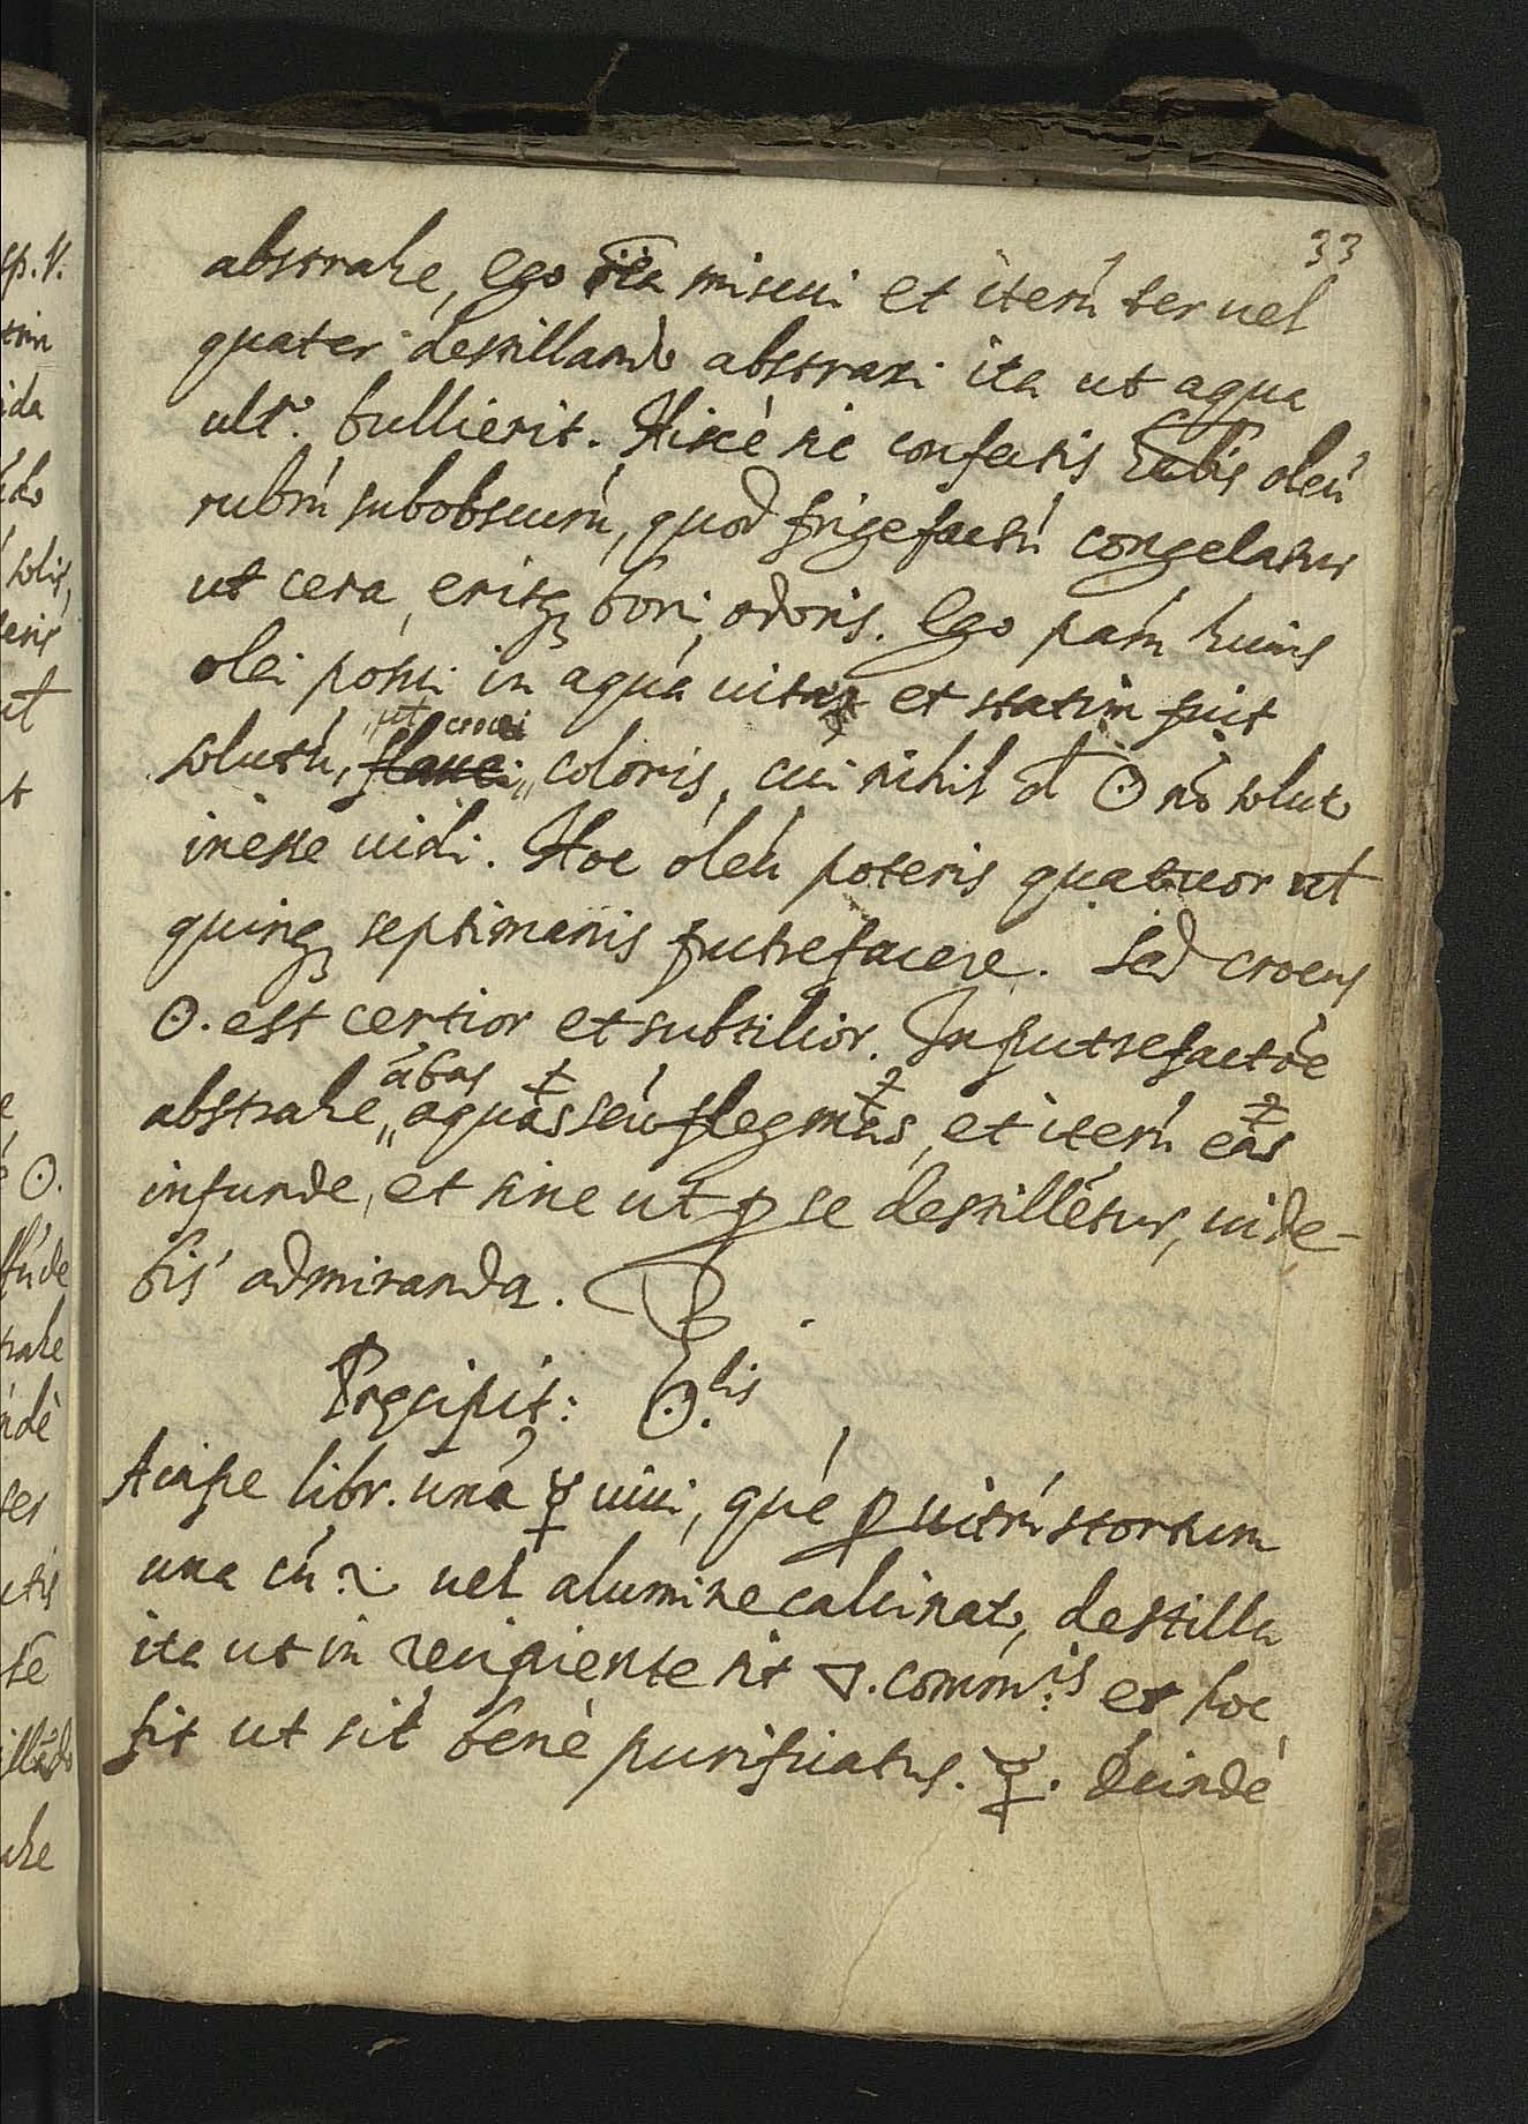 33
abstrahe, ego ita miscui et iterū ter uel
quater destillando abstraxi ita ut aqua
ult°. bullierit. Hiscè sic confectis oleū
rubrū subobscurū, quod frigefactū congelatur
ut cera, eritq; boni odoris. Ego pām huius
olei posui in aquā uitæ et statim fuit
ut crocei
solutū, flaui coloris, cui nihil ☉ nō soluto
inesse uidi. Hoc oleū poteris quatuor uel
quinq; septimanis putrefacere. Sed crocus
☉. est certior et subtilior. In putrefactōe
ābas
abstrahe aquas seu flegmas, et iterū eas
infunde, et sine ut p se destillētur, uide-
bis admiranda.
Præcipit: ☉.lis
Accipe libr. unā ☿ uiui, quē p uitrū stortum
una cū uel alumine calcinato, destilla
ita ut in recipiente sit ▽. comm:is et hoc
fit ut sit benè purificatus. ☿. Deindè
sp. V.
ida
solis,
ut
t
☉.